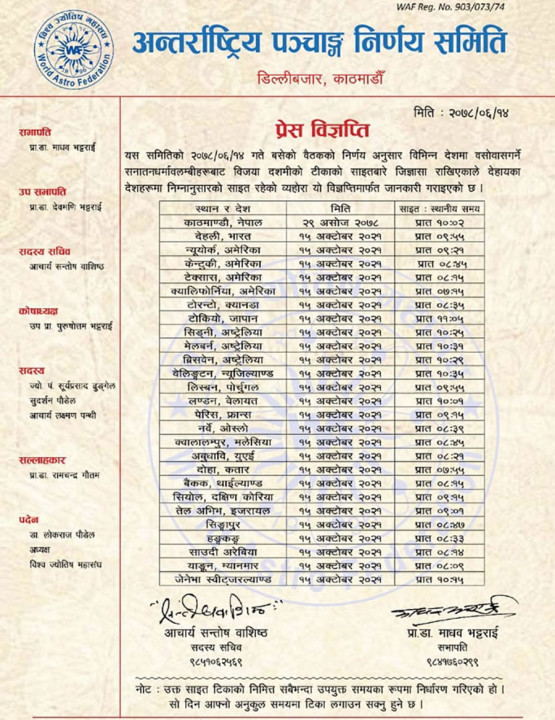 WAF Reg. No. 903/073/74
विश्व ज्योतिष महासंघ
WAF
World Astro Federation
अन्तर्राष्ट्रिय पञ्चाङ्ग निर्णय समिति
डिल्लीबजार, काठमाडौँ
मिति : २०७८/०६/१४
प्रेस विज्ञप्ति
यस समितिको २०७८/०६/१४ गते बसेको बैठकको निर्णय अनुसार विभिन्न देशमा वसोवासगर्ने
सनातनधर्मावलम्बीहरूबाट विजया दशमीको टीकाको साइतबारे जिज्ञासा राखिएकाले देहायका
देशहरूमा निम्नानुसारको साइत रहेको व्यहोरा यो विज्ञप्तिमार्फत जानकारी गराइएको छ ।
सभापति
प्रा.डा. माधव भट्टराई
उप सभापति
प्रा.डा. देवमणि भट्टराई
सदस्य सचिव
आचार्य सन्तोष वाशिष्ठ
कोषाध्यक्ष
उप प्रा. पुरुषोतम भट्टराई
सदस्य
ज्यो. पं. सूर्यप्रसाद ढुङ्गेल
सुदर्शन पौडेल
आचार्य लक्ष्मण पन्थी
सल्लाहकार
प्रा.डा. रामचन्द्र गौतम
पदेन
डा. लोकराज पौडेल
अध्यक्ष
विश्व ज्योतिष महासंघ
स्थान र देश मिति साइत : स्थानीय समय
काठमाण्डौ, नेपाल २९ असोज २०७८ प्रात १०:०२
देहली, भारत १५ अक्टोबर २०२१ प्रात ०९:५५
न्यूयोर्क, अमेरिका १५ अक्टोबर २०२१ प्रात ०९:२१
केन्टुकी, अमेरिका १५ अक्टोबर २०२१ प्रात ०८:४५
टेक्सास, अमेरिका १५ अक्टोबर २०२१ प्रात ०८:१५
क्यालिफोर्निया, अमेरिका १५ अक्टोबर २०२१ प्रात ०७:१५
टोरन्टो, क्यानडा १५ अक्टोबर २०२१ प्रात ०८:३५
टोकियो, जापान १५ अक्टोबर २०२१ प्रात ११:०५
सिड्नी, अष्ट्रेलिया १५ अक्टोबर २०२१ प्रात १०:२५
मेलबर्न, अष्ट्रेलिया १५ अक्टोबर २०२१ प्रात १०:३१
ब्रिसवेन, अष्ट्रेलिया १५ अक्टोबर २०२१ प्रात १०:२९
वेलिङ्टन, न्यूजिल्याण्ड १५ अक्टोबर २०२१ प्रात १०:३५
लिस्बन, पोर्चुगल १५ अक्टोबर २०२१ प्रात ०९:५५
लण्डन, वेलायत १५ अक्टोबर २०२१ प्रात १०:०१
पेरिस, फ्रान्स १५ अक्टोबर २०२१ प्रात ०९:१५
नर्वे, ओस्लो १५ अक्टोबर २०२१ प्रात ०८:३९
क्वालालम्पुर, मलेसिया १५ अक्टोबर २०२१ प्रात ०८:४५
अबुधावि, युएई १५ अक्टोबर २०२१ प्रात ०८:२१
दोहा, कतार १५ अक्टोबर २०२१ प्रात ०७:५५
बैंकक, थाईल्याण्ड १५ अक्टोबर २०२१ प्रात ०८:१५
सियोल, दक्षिण कोरिया १५ अक्टोबर २०२१ प्रात ०९:१५
तेल अभिभ, इजरायल १५ अक्टोबर २०२१ प्रात ०९:०१
सिङ्गापुर १५ अक्टोबर २०२१ प्रात ०८:४७
हङ्कङ्ग १५ अक्टोबर २०२१ प्रात ०८:३३
साउदी अरेबिया १५ अक्टोबर २०२१ प्रात ०८:१४
याङून, म्यानमार १५ अक्टोबर २०२१ प्रात ०८:०९
जेनेभा स्वीट्जरल्याण्ड १५ अक्टोबर २०२१ प्रात १०:१५
आचार्य सन्तोष वाशिष्ठ
सदस्य सचिव
९८५१०६२५६९
प्रा.डा. माधव भट्टराई
सभापति
९८४१७६०२९९
नोट : उक्त साइत टिकाको निमित्त सबैभन्दा उपयुक्त समयका रूपमा निर्धारण गरिएको हो ।
सो दिन आफ्नो अनुकुल समयमा टिका लगाउन सक्नु हुने छ ।